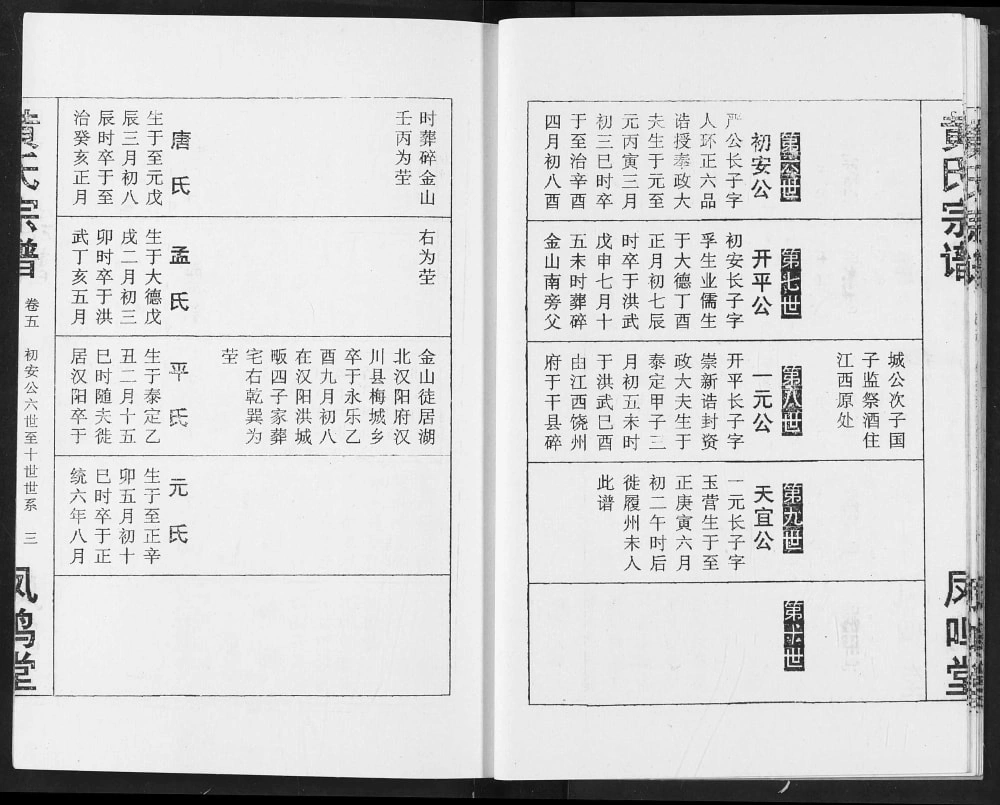 黄氏宗谱
凤鸣堂
第六世
初安公
严公长子字
人环正六品
诰授奉政大
夫生于元至
元丙寅三月
初三巳时卒
于至治辛酉
四月初八酉
第七世
开平公
初安长子字
孚生业儒生
于大德丁酉
正月初七辰
时卒于洪武
戊申七月十
五未时葬碎
金山南旁父
城公次子国
子监祭酒住
江西原处
第八世
一元公
开平长子字
崇新诰封资
政大夫生于
泰定甲子三
月初五未时
于洪武巳酉
由江西饶州
府于干县碎
第九世
天宜公
一元长子字
玉营生于至
正庚寅六月
初二午时后
徙履州未人
此谱
第十世
时葬碎金山
壬丙为茔
唐氏
生于至元戊
辰三月初八
辰时卒于至
治癸亥正月
右为茔
孟氏
生于大德戊
戌二月初三
卯时卒于洪
武丁亥五月
金山徒居湖
北汉阳府汉
川县梅城乡
卒于永乐乙
酉九月初八
在汉阳洪城
畈四子家葬
宅右乾巽为
茔
平氏
生于泰定乙
丑二月十五
巳时随夫徙
居汉阳卒于
元氏
生于至正辛
卯五月初十
巳时卒于正
统六年八月
黄氏宗谱
卷五
初安公六世至十世世系
三
凤鸣堂